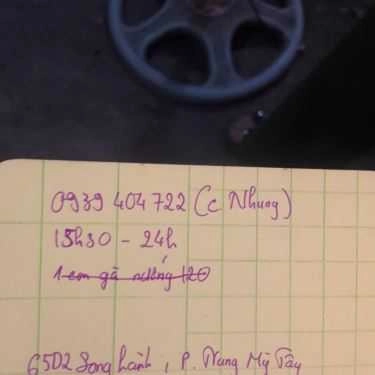 0939 404 722 (c Nhung)
15h30 - 24h
1 em gà nướng 120
65D2 Song hành, P. Trung Mỹ Tây